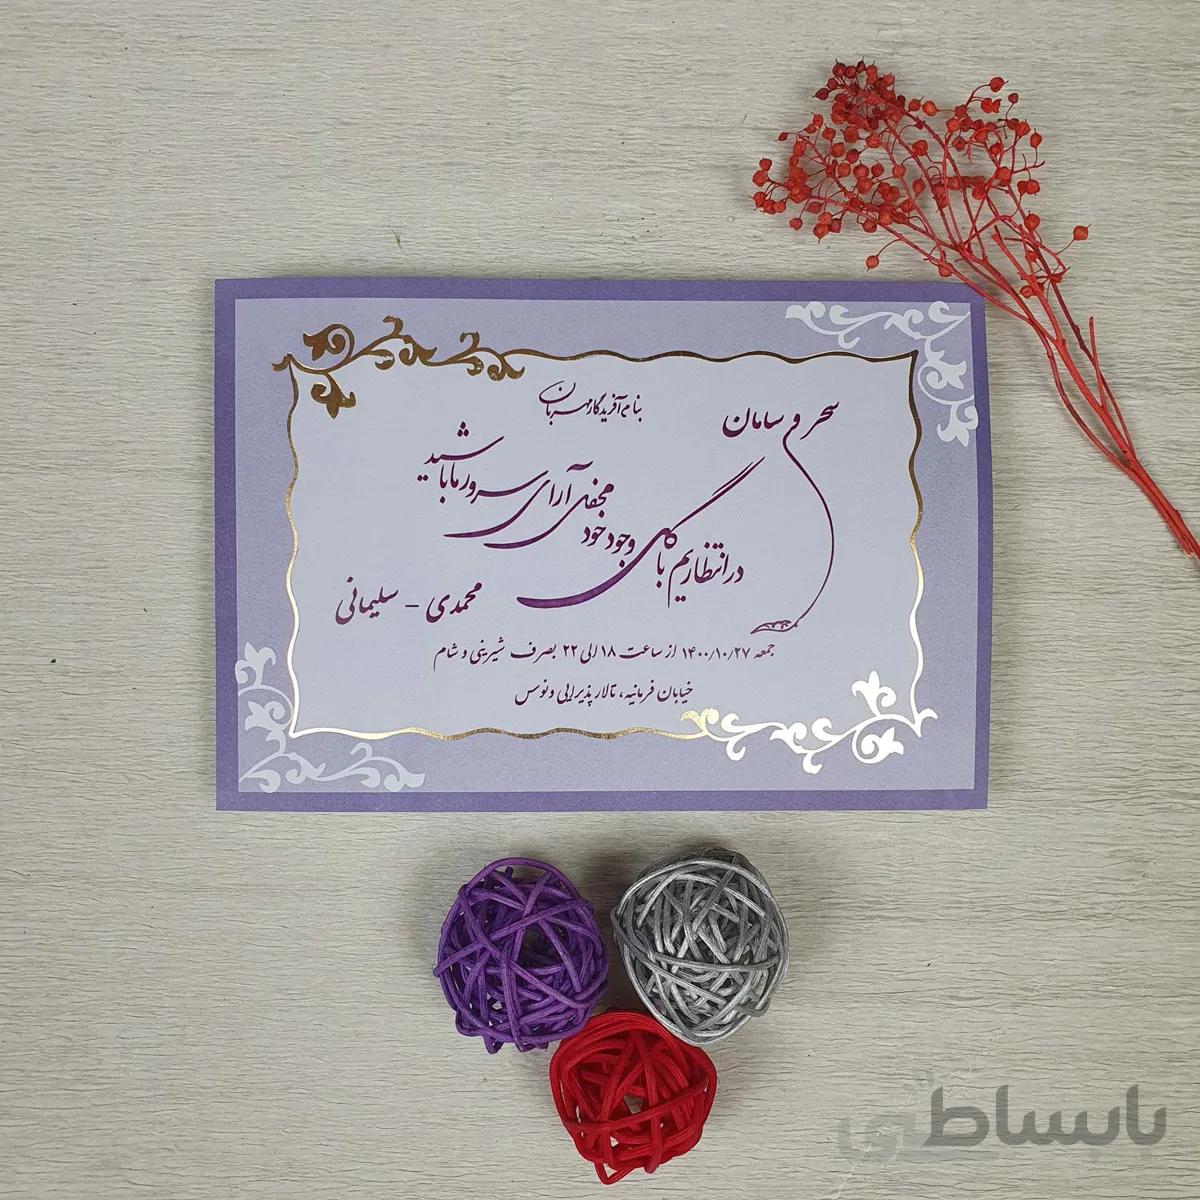 بنام آفریدگار مهربان
سحر و سامان
در انتظاریم با گل وجود خود
محفل آرای سرور ما باشید
محمدی - سلیمانی
جمعه ۱۴۰۰/۱۰/۲۷ از ساعت ۱۸ الی ۲۲ بصرف شیرینی و شام
خیابان فرمانیه، تالار پذیرایی ونوس
باسلیطی